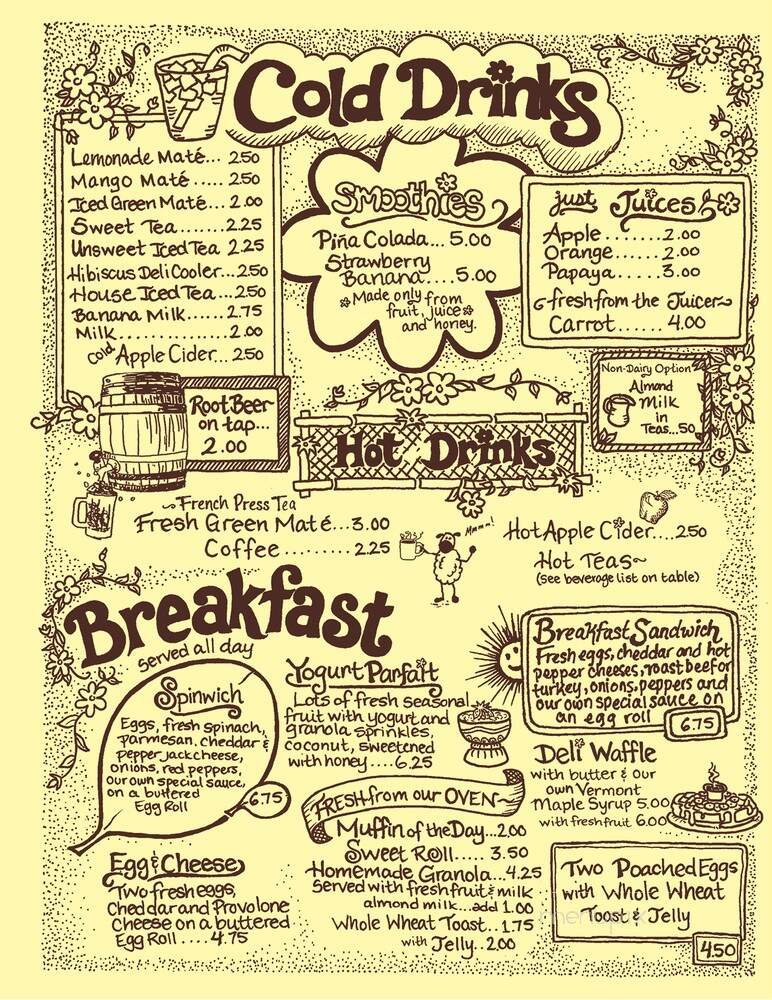 Cold Drinks
Lemonade Maté... 2.50
Mango Maté...... 2.50
Iced Green Maté... 2.00
Sweet Tea.......2.25
Unsweet Iced Tea 2.25
Hibiscus Deli Cooler...2.50
House Iced Tea...2.50
Banana Milk......2.75
Milk................2.00
Cold Apple Cider... 2.50
Smoothies
Piña Colada... 5.00
Strawberry
Banana....5.00
Made only from
fruit, juice
and honey.
just Juices
Apple.......2.00
Orange......2.00
Papaya.....3.00
fresh from the Juicer~
Carrot...... 4.00
Non-Dairy Option
Almond
Milk
in
Teas...50
Root Beer
on tap...
2.00
Hot Drinks
~French Press Tea
Fresh Green Maté...3.00
Coffee..........2.25
Mmmm!
Hot Apple Cider....2.50
Hot Teas~
(see beverage list on table)
Breakfast
served all day
Spinwich
Eggs, fresh spinach,
parmesan, cheddar &
pepper jack cheese,
onions, red peppers,
our own special sauce,
on a buttered
Egg Roll
6.75
Yogurt Parfait
Lots of fresh seasonal
fruit with yogurt and
granola sprinkles,
coconut, sweetened
with honey....6.25
Breakfast Sandwich
Fresh eggs, cheddar and hot
pepper cheeses, roast beef or
turkey, onions, peppers and
our own special sauce on
an egg roll
6.75
Deli Waffle
with butter & our
own Vermont
Maple Syrup 5.00
with fresh fruit 6.00
FRESH from our OVEN~
Muffin of the Day...2.00
Sweet Roll.... 3.50
Homemade Granola...4.25
Served with fresh fruit & milk
almond milk...add 1.00
Whole Wheat Toast..1.75
with Jelly..2.00
Egg & Cheese
Two fresh eggs,
Cheddar and Provolone
Cheese on a buttered
Egg Roll....4.75
Two Poached Eggs
with Whole Wheat
Toast & Jelly
4.50